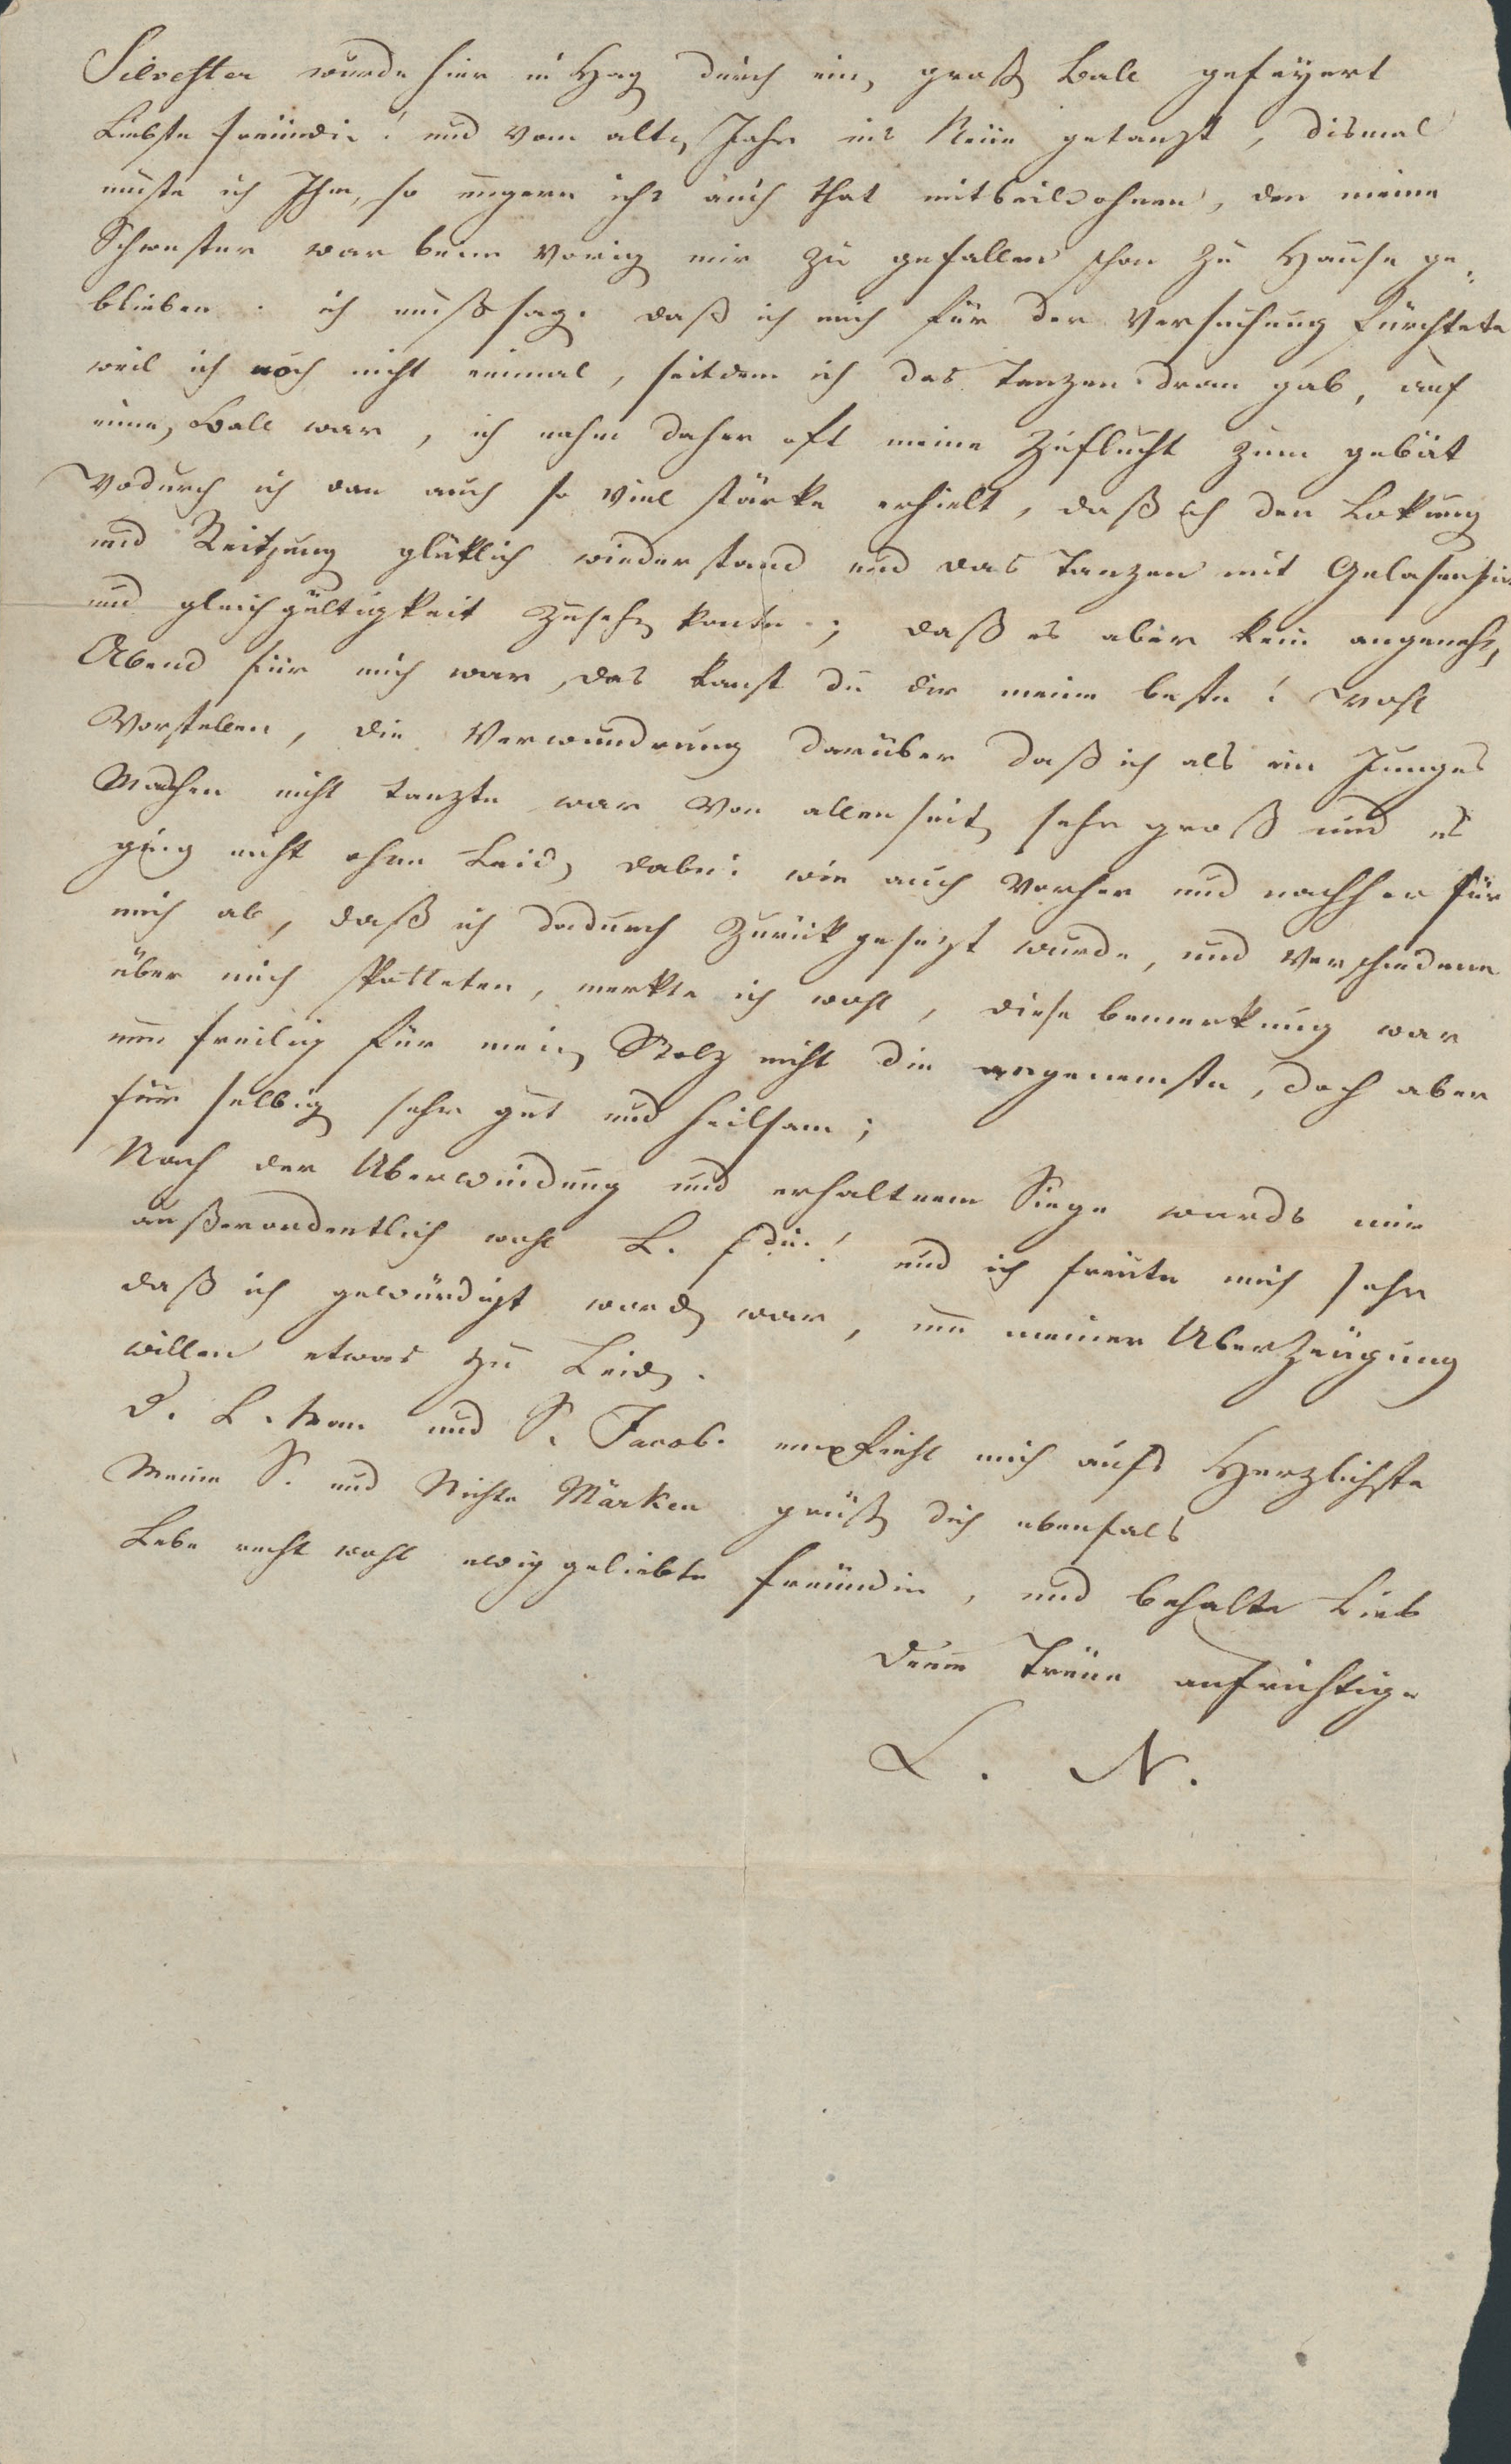 Silvester wurde hier in Hag durch ein groß Ball gefeyert
Liebste freündin! und vom alten Jahr ins Neüe getanzt, dismal
muste ich Ihm, so ungern ichs auch that mitbeiwohnen, den meine
Schwester war beim vorig mir zu gefallen schon zu Hause ge-
blieben. ich muß sagen daß ich mich für der Versuchung fürchtete
weil ich noch nicht einmal, seitdem ich das Tanzen dran gab, auf
einen Ball war, ich nahm daher oft meine Zuflucht zum gebät
Wodurch ich dan auch so viel stärke erhielt, daß ich den Lokung
und Reitzung glüklich wiederstand und das Tanzen mit Gelasenheit
und gleichgültigkeit zusehen konte; daß es aber kein angenehm
Abend für mich war, das kanst du dir meine beste! wohl
Vorstellen, die Verwundrung darüber daß ich als ein Junges
Mädchen nicht tanzte war von allen seiten sehr groß und es
ging nicht ohne Leiden dabei wie auch vorher und nachher für
mich ab, daß ich dadurch zurückgesezt wurde, und verschiedene
über mich spotteten, merkte ich wohl, diese bemerkung war
nun freilig für mein Stolz nicht die angenemste, doch aber
für selbig sehr gut und heilsam;
Nach der Uberwindung und erhaltnem Siege wurds mir
außerordentlich wohl L. fdin! und ich freute mich sehr
daß ich gewürdigt worden war, um meiner Uberzeugung
willen etwas zu Leiden.
D. L. Man und S. Jacob. empfiehl mich aufs Herzlichste
Meine S. und Nichte Märken grüßen dich ebenfals
Lebe recht wohl ewig geliebte freundin, und behalte Lieb
Deine Treüe aufrichtige
L. N.